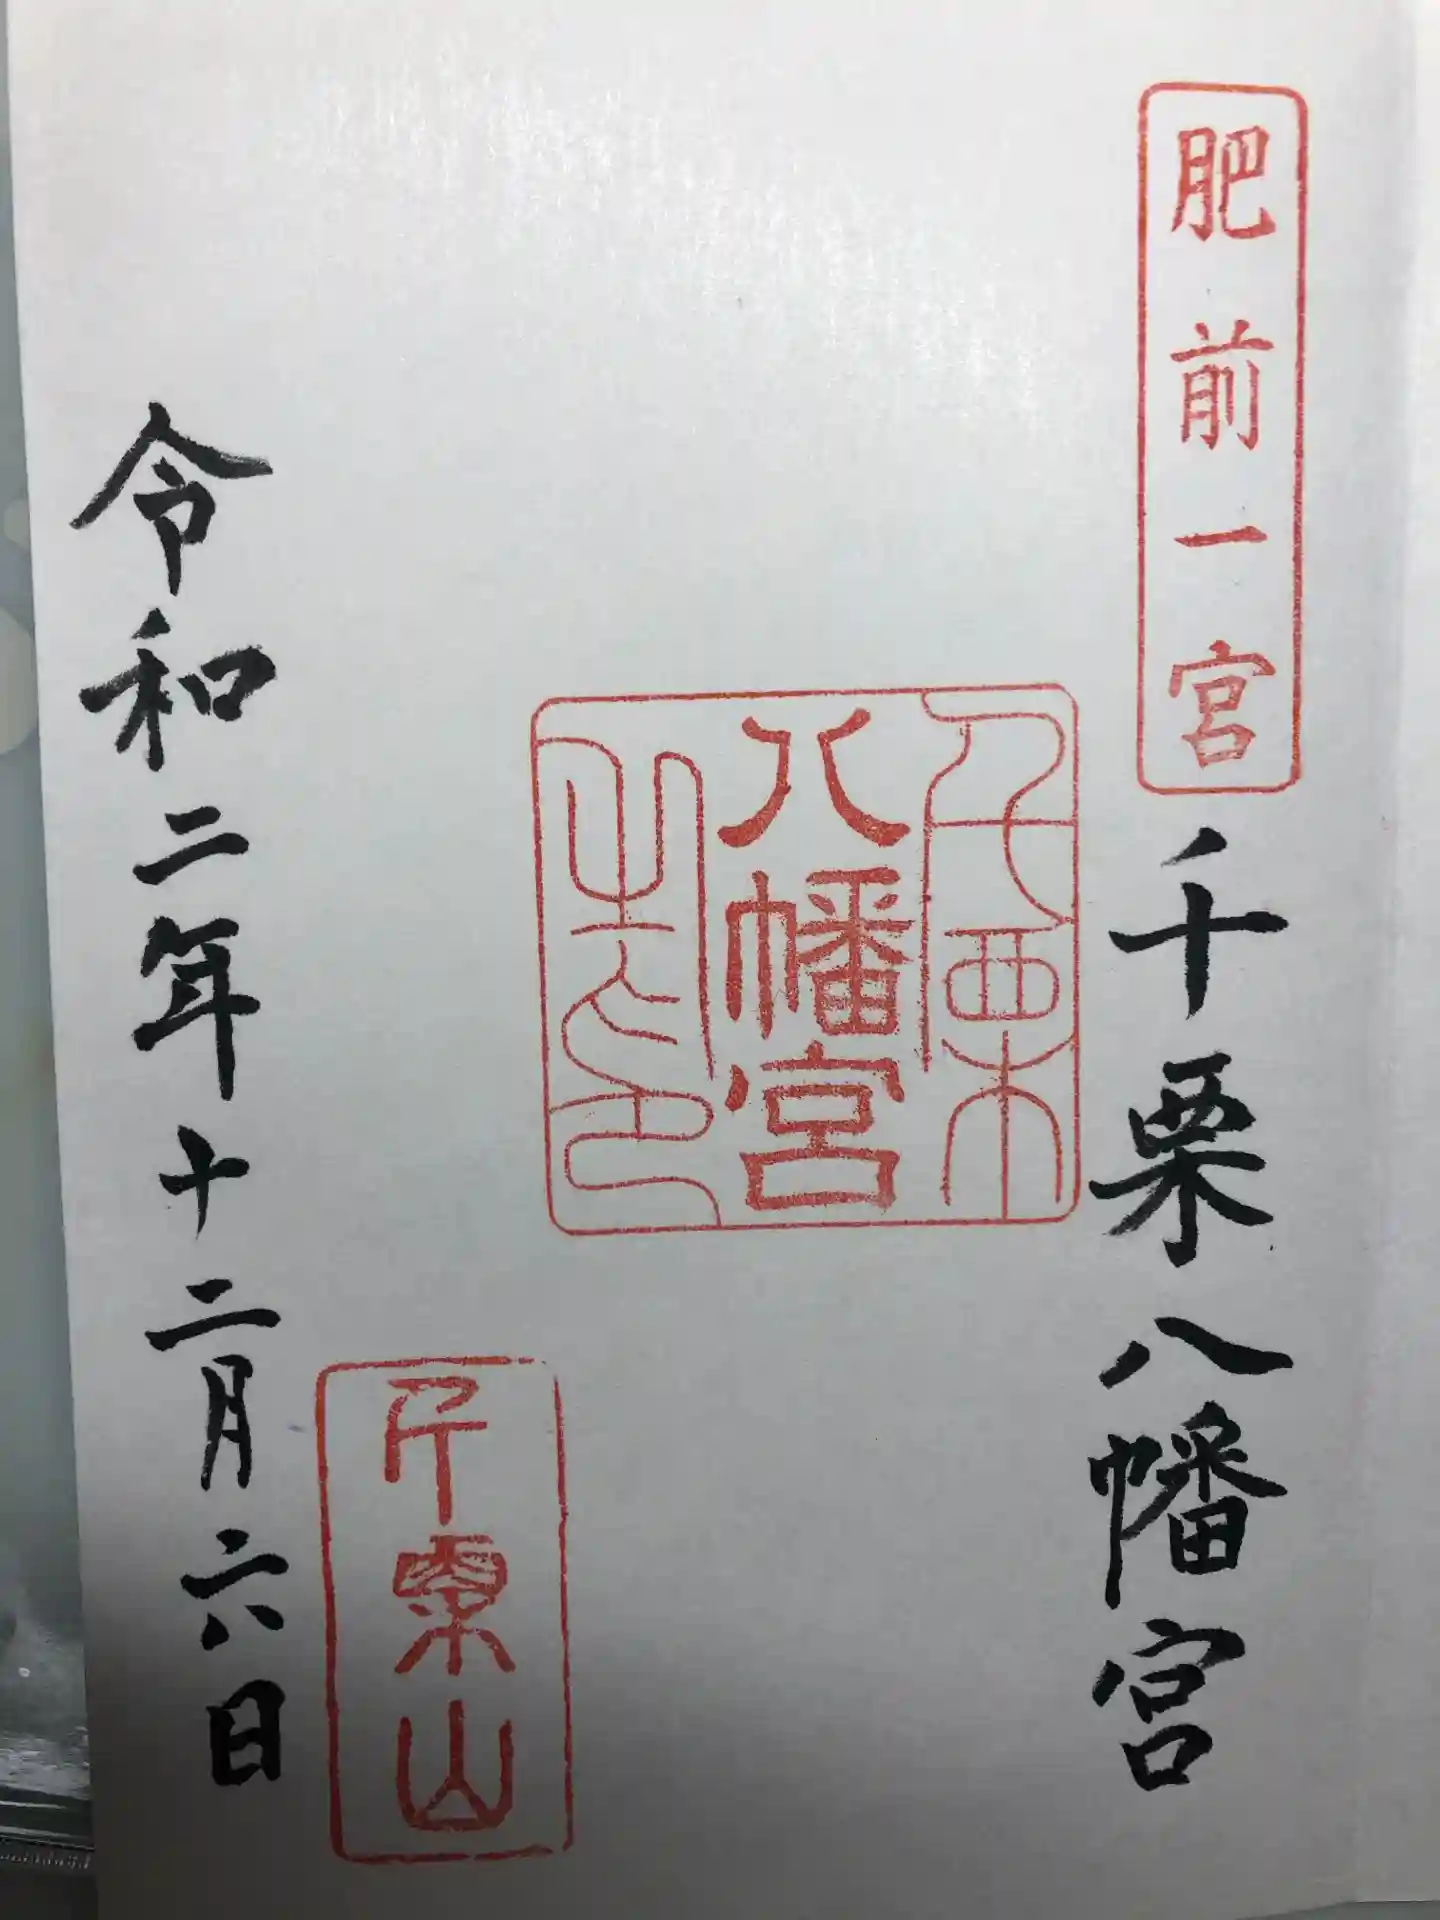 肥前一宮
千栗八幡宮
千栗
八幡宮
之印
千栗山
令和二年十二月六日